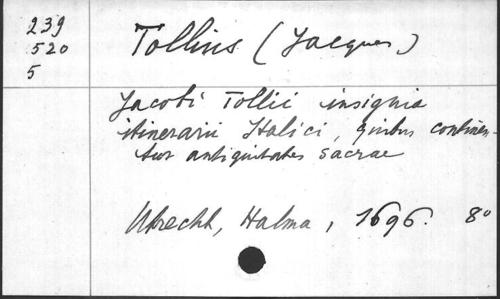 239
520
5
Tollius (Jacques)
Jacobi Tollii insignia
itinerarii Italici, quibus continen-
tur antiquitates sacrae
Utrecht, Halma, 1696. 8°